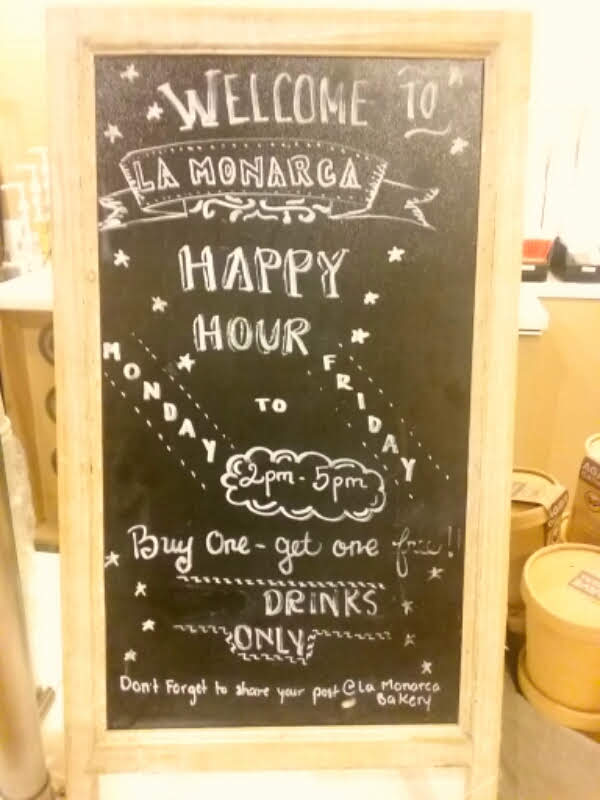 WELCOME TO
LA MONARCA
HAPPY
HOUR
MONDAY
TO
FRIDAY
2pm - 5pm
Buy One - get one free!!
DRINKS
ONLY
Don't Forget to share your post @La Monarca
Bakery